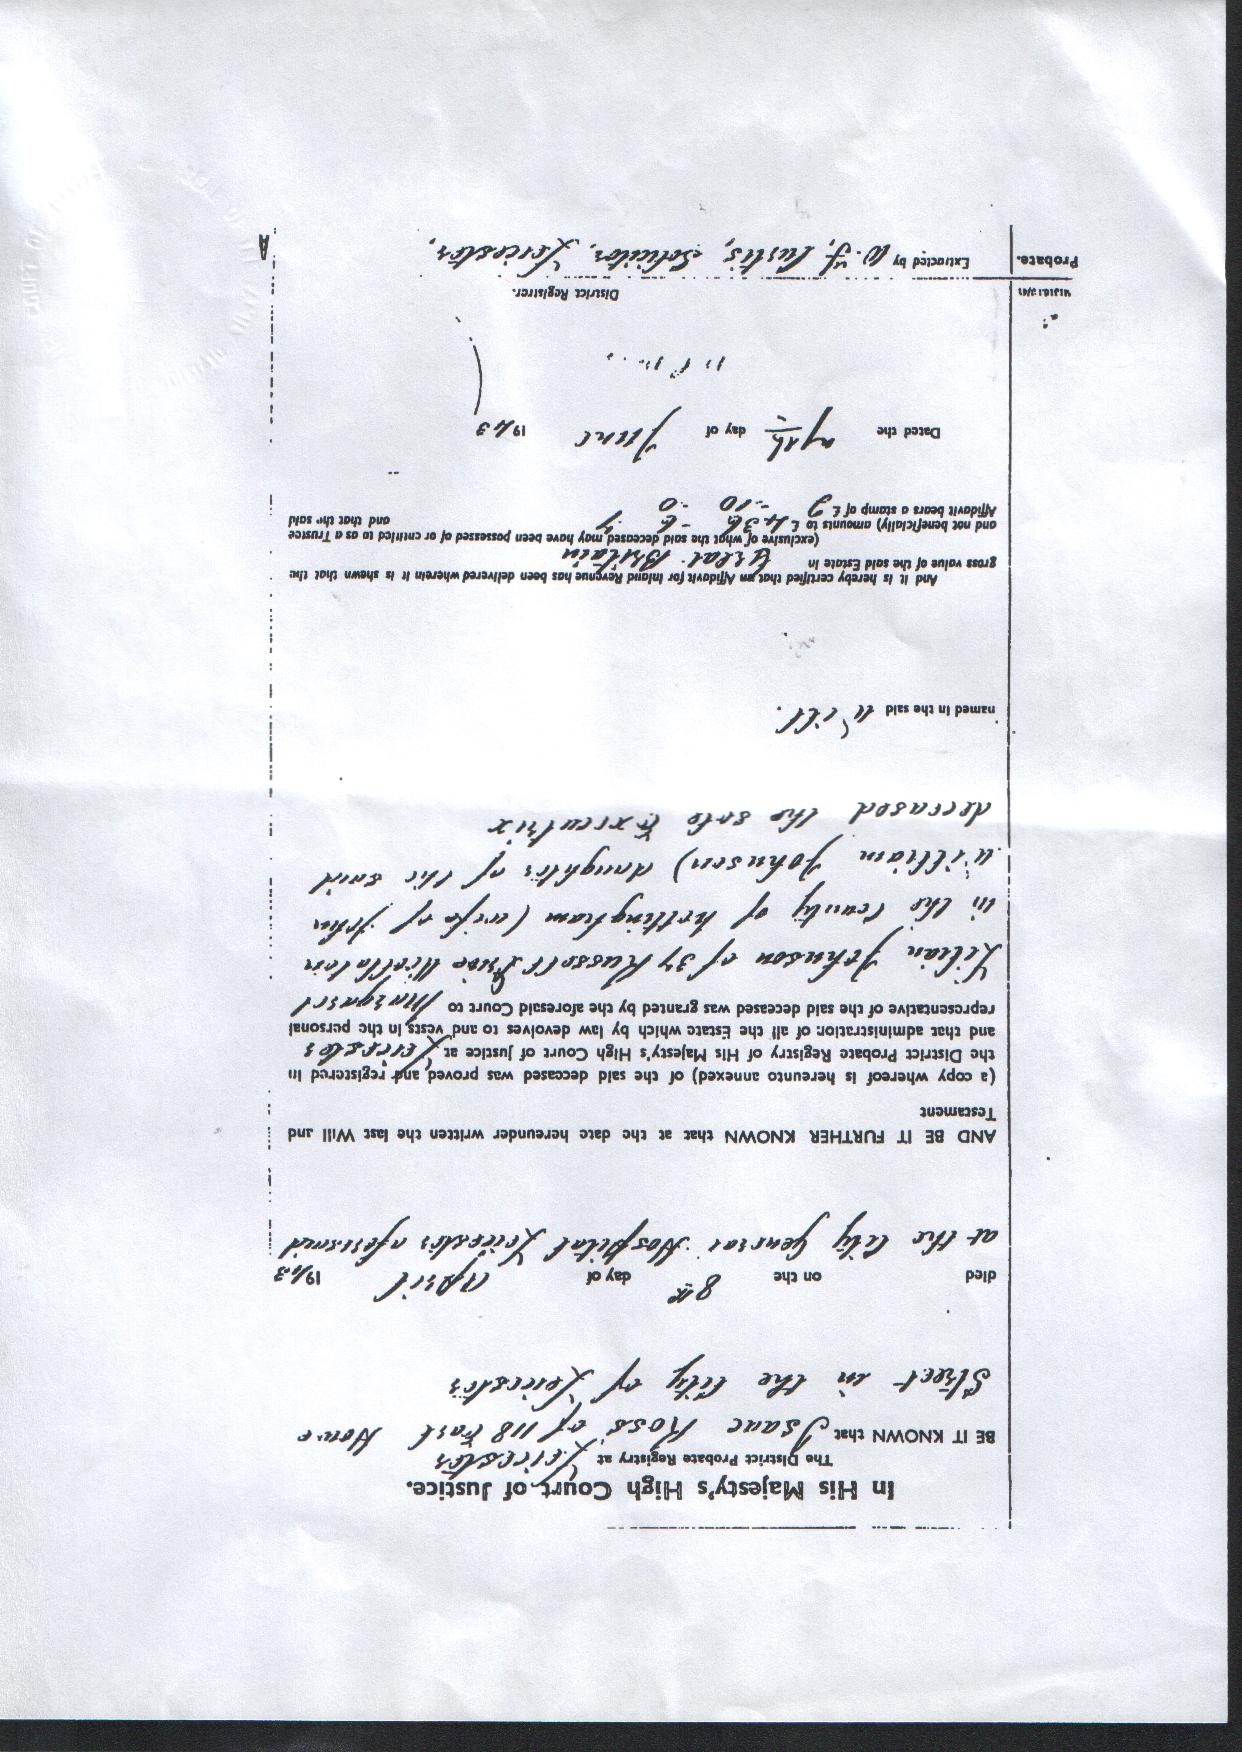 In His Majesty's High Court of Justice.
The District Probate Registry at Leicester
BE IT KNOWN that Isaac Ross of 118 East
Street in the City of Leicester
died on the 8th day of April 1943
at the City General Hospital Leicester aforesaid
AND BE IT FURTHER KNOWN that at the date hereunder written the last Will and
Testament
(a copy whereof is hereunto annexed) of the said deceased was proved and registered in
the District Probate Registry of His Majesty's High Court of Justice at Leicester
and that administration of all the Estate which by law devolves to and vests in the personal
representative of the said deceased was granted by the aforesaid Court to Margaret
Lilian Johnson of 37 Russell Drive Wollaton
in the County of Nottingham (wife of John
William Johnson) daughter of the said
deceased the sole Executrix
named in the said Will.
And it is hereby certified that an Affidavit for Inland Revenue has been delivered wherein it is shewn that the
gross value of the said Estate in Great Britain
(exclusive of what the said deceased may have been possessed of or entitled to as a Trustee
and not beneficially) amounts to £ and that the said
Affidavit bears a stamp of £ 2 - 10 - 0
Dated the day of June 1943
District Registrar.
Probate.
Extracted by W. J. Curtis, Solicitor, Leicester.
A